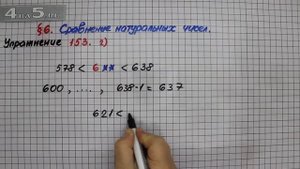 4 на 5.ru
§6. Сравнение натуральных чисел.
Упражнение 153. 2)
578 < 6** < 638
600, ...., 638-1 = 637
621 <